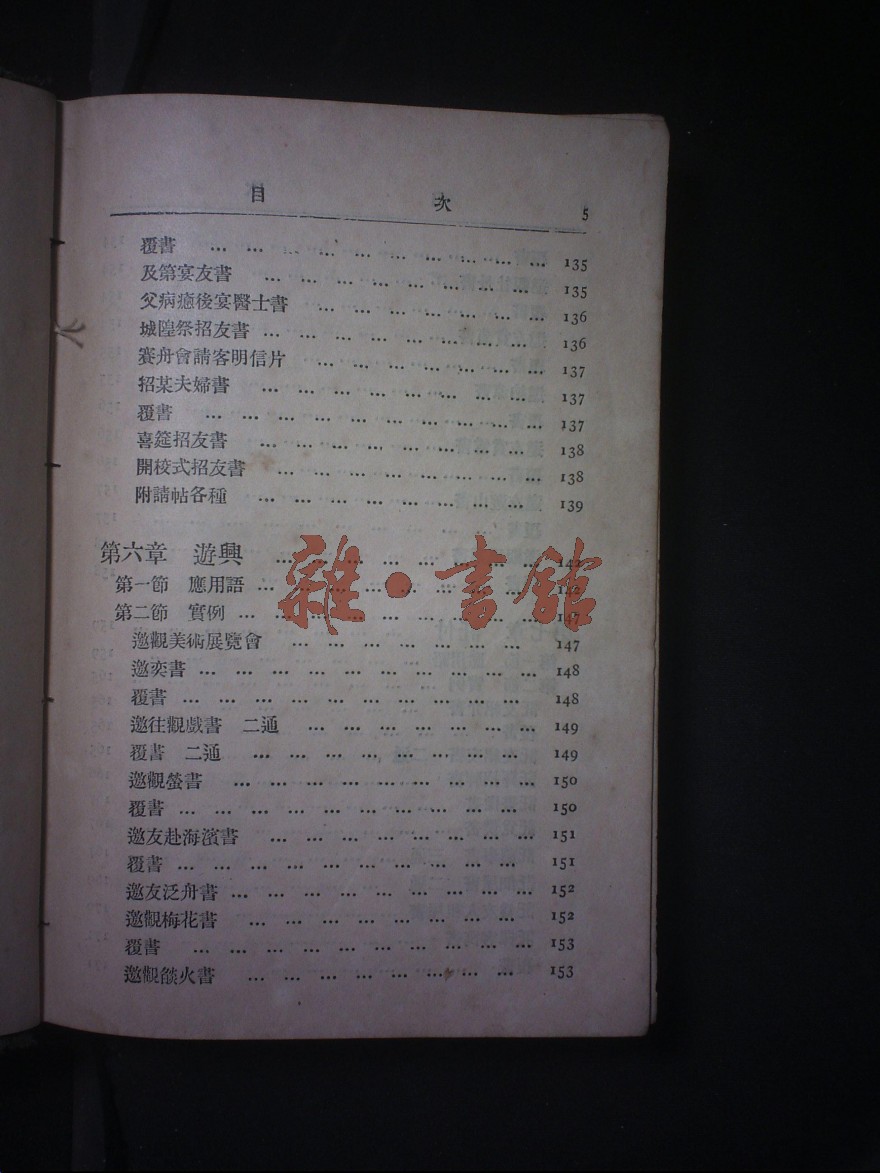 目 次 5
覆書 ... 135
及第宴友書 ... 135
父病癒後宴醫士書 ... 136
城隍祭招友書 ... 136
賽舟會請客明信片 ... 137
招某夫婦書 ... 137
覆書 ... 137
喜筵招友書 ... 138
開校式招友書 ... 138
附請帖各種 ... 139
第六章 遊興 ... 142
第一節 應用語 ... 142
第二節 實例 ... 147
雜·書館
邀觀美術展覽會 ... 147
邀奕書 ... 148
覆書 ... 148
邀往觀戲書 二通 ... 149
覆書 二通 ... 149
邀觀螢書 ... 150
覆書 ... 150
邀友赴海濱書 ... 151
覆書 ... 151
邀友泛舟書 ... 152
邀觀梅花書 ... 152
覆書 ... 153
邀觀燄火書 ... 153